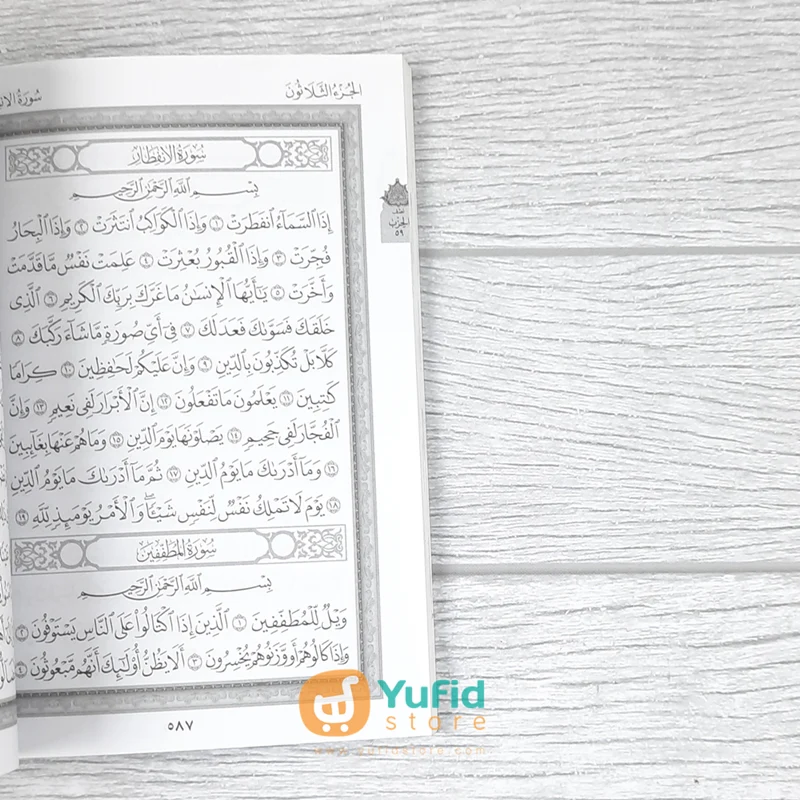 الجُزْءُ الثَّلَاثُونَ
سُورَةُ الانفِطَارِ
بِسْمِ ٱللَّهِ ٱلرَّحْمَٰنِ ٱلرَّحِيمِ
إِذَا ٱلسَّمَآءُ ٱنفَطَرَتْ ١ وَإِذَا ٱلْكَوَاكِبُ ٱنتَثَرَتْ ٢ وَإِذَا ٱلْبِحَارُ
فُجِّرَتْ ٣ وَإِذَا ٱلْقُبُورُ بُعْثِرَتْ ٤ عَلِمَتْ نَفْسٌ مَّا قَدَّمَتْ
وَأَخَّرَتْ ٥ يَٰٓأَيُّهَا ٱلْإِنسَٰنُ مَا غَرَّكَ بِرَبِّكَ ٱلْكَرِيمِ ٦ ٱلَّذِى
خَلَقَكَ فَسَوَّىٰكَ فَعَدَلَكَ ٧ فِىٓ أَىِّ صُورَةٍ مَّا شَآءَ رَكَّبَكَ ٨
كَلَّا بَلْ تُكَذِّبُونَ بِٱلدِّينِ ٩ وَإِنَّ عَلَيْكُمْ لَحَٰفِظِينَ ١٠ كِرَامًا
كَٰتِبِينَ ١١ يَعْلَمُونَ مَا تَفْعَلُونَ ١٢ إِنَّ ٱلْأَبْرَارَ لَفِى نَعِيمٍ ١٣ وَإِنَّ
ٱلْفُجَّارَ لَفِى جَحِيمٍ ١٤ يَصْلَوْنَهَا يَوْمَ ٱلدِّينِ ١٥ وَمَا هُمْ عَنْهَا بِغَآئِبِينَ
١٦ وَمَآ أَدْرَىٰكَ مَا يَوْمُ ٱلدِّينِ ١٧ ثُمَّ مَآ أَدْرَىٰكَ مَا يَوْمُ ٱلدِّينِ
١٨ يَوْمَ لَا تَمْلِكُ نَفْسٌ لِّنَفْسٍ شَيْـًٔا ۖ وَٱلْأَمْرُ يَوْمَئِذٍ لِّلَّهِ ١٩
سُورَةُ المُطَفِّفِينَ
بِسْمِ ٱللَّهِ ٱلرَّحْمَٰنِ ٱلرَّحِيمِ
وَيْلٌ لِّلْمُطَفِّفِينَ ١ ٱلَّذِينَ إِذَا ٱكْتَالُوا۟ عَلَى ٱلنَّاسِ يَسْتَوْفُونَ ٢
وَإِذَا كَالُوهُمْ أَو وَّزَنُوهُمْ يُخْسِرُونَ ٣ أَلَا يَظُنُّ أُو۟لَٰٓئِكَ أَنَّهُم مَّبْعُوثُونَ ٤
٥٨٧
نصف
الحزب
٥٩
Yufid
store
www.yufidstore.com